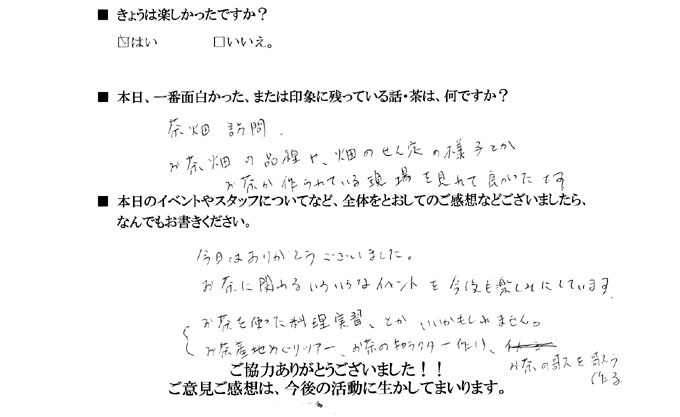 ■ きょうは楽しかったですか？
☑はい　□いいえ。
■ 本日、一番面白かった、または印象に残っている話・茶は、何ですか？
茶畑 訪問．
お茶畑の品種や、畑のせん定の様子とか
お茶が作られている現場を見れて良かったです
■ 本日のイベントやスタッフについてなど、全体をとおしてのご感想などございましたら、
なんでもお書きください。
今日はありがとうございました。
お茶に関するいろいろなイベントを今後も楽しみにしています
お茶を使った料理実習、とかいいかもしれません。
お茶産地めぐりツアー、お茶のキャラクター作り、
お茶の歌を歌う
作る
ご協力ありがとうございました！！
ご意見ご感想は、今後の活動に生かしてまいります。